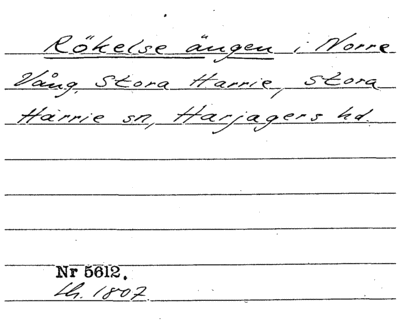 Rökelse ängen i Norre
Vång, Stora Harrie, Stora
Harrie sn, Harjagers hd.
Nr 5612.
Lh. 1807